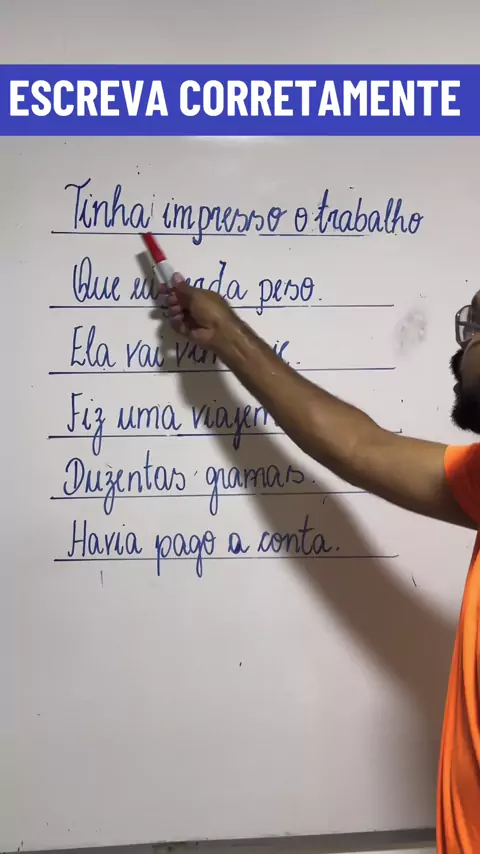 ESCREVA CORRETAMENTE
Tinha impresso o trabalho
Que peso.
Ela vai
Fiz uma viajem
Duzentas gramas.
Havia pago a conta.